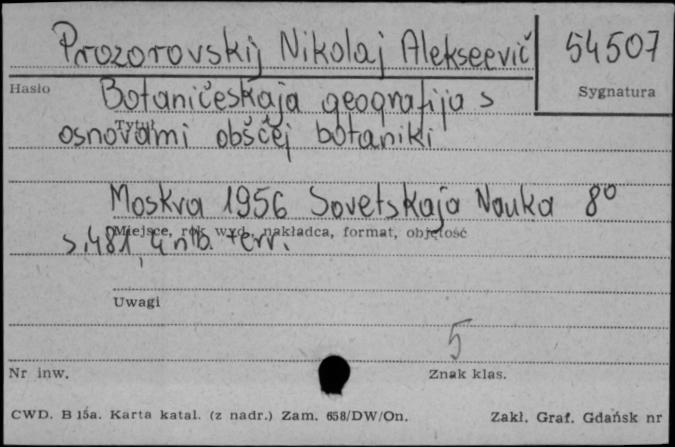 Prozorovskij Nikolaj Alekseevič 54507
Hasło Sygnatura
Botaničeskaja geografija s
Tytuł
osnovami obščej botaniki
Moskva 1956 Sovetskaja Nauka 8°
Miejsce, rok wyd., nakładca, format, objętość
s. 481, 4 nlb. + err.
Uwagi
5
Nr inw. Znak klas.
CWD. B 15a. Karta katal. (z nadr.) Zam. 658/DW/On. Zakł. Graf. Gdańsk nr